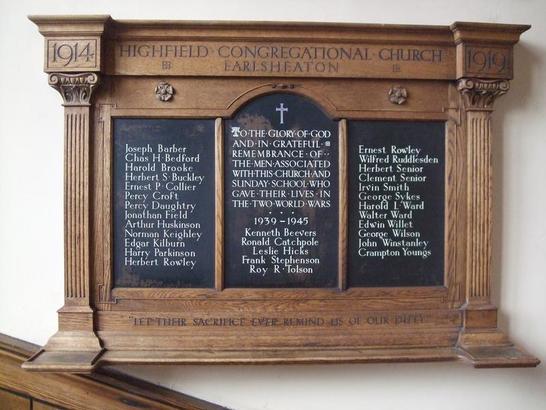 1914
HIGHFIELD · CONGREGATIONAL · CHURCH
EARLSHEATON
1919
Joseph Barber
Chas H · Bedford
Harold Brooke
Herbert S · Buckley
Ernest P · Collier
Percy Croft
Percy Daughtry
Jonathan Field
Arthur Huskinson
Norman Keighley
Edgar Kilburn
Harry Parkinson
Herbert Rowley
TO·THE·GLORY·OF·GOD
AND·IN·GRATEFUL
REMEMBRANCE·OF
THE·MEN·ASSOCIATED
WITH·THIS·CHURCH·AND
SUNDAY·SCHOOL·WHO
GAVE·THEIR·LIVES·IN
THE·TWO·WORLD·WARS
1939–1945
Kenneth Beevers
Ronald Catchpole
Leslie Hicks
Frank Stephenson
Roy R · Tolson
Ernest Rowley
Wilfred Ruddlesden
Herbert Senior
Clement Senior
Irvin Smith
George Sykes
Harold L · Ward
Walter Ward
Edwin Willet
George Wilson
John Winstanley
Crampton Youngs
"LET THEIR SACRIFICE EVER REMIND US OF OUR DUTY"